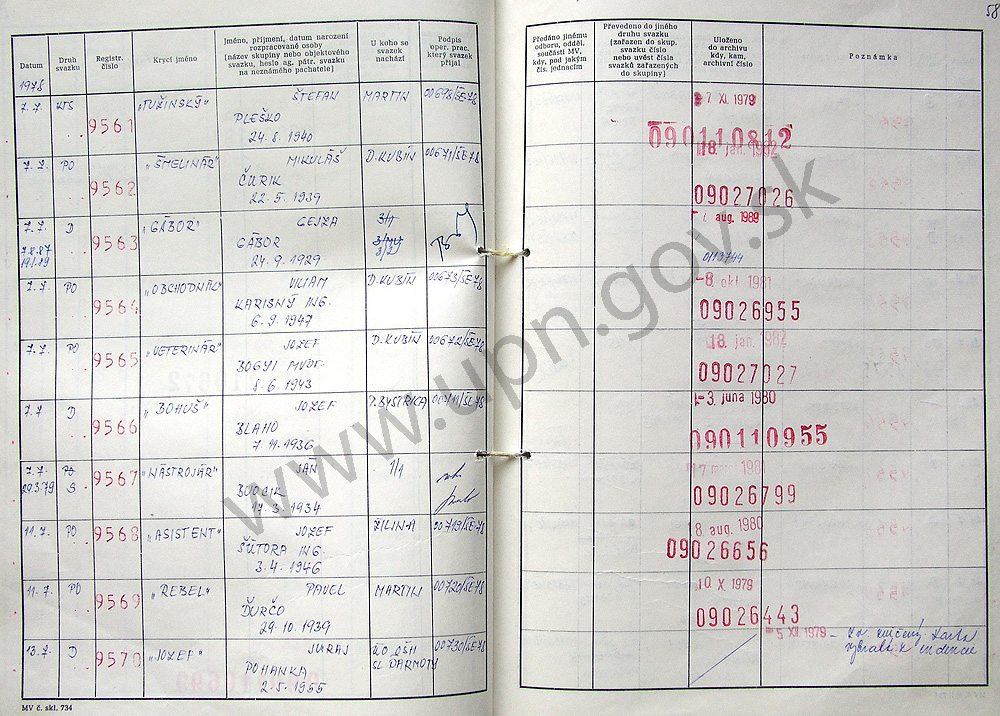 58
Datum
Druh svazku
Registr. číslo
Krycí jméno
Jméno, příjmení, datum narození
rozpracované osoby
(název skupiny nebo objektového
svazku, heslo ag. pátr. svazku
na neznámého pachatele)
U koho se
svazek
nachází
Podpis
oper. prac.
který svazek
přijal
Předáno jinému
odboru, odděl.
součásti MV,
kdy, pod jakým
čís. jednacím
Převedeno do jiného
druhu svazku
(zařazen do skup.
svazku číslo
nebo uvést čísla
svazků zařazených
do skupiny)
Uloženo
do archivu
kdy, kam,
archivní číslo
Poznámka
1978
7.7. 9561 "TUŽINSKÝ" ŠTEFAN MARTIN 00698/SE-78 7 XI. 1979
PLEŠKO
24.8.1940 090110812
7.7. PO 9562 "ŠMELINÁR" MIKULÁŠ D.KUBÍN 00671/SE-78 18. jan. 1982
ČURIK
22.5.1939 09027026
7.7. D 9563 "GÁBOR" GEJZA 3/1 aug. 1989
GÁBOR
24.9.1929
7.7. PO 9564 "OBCHODNÍK" VILIAM D.KUBÍN 00673/SE-78 -8. okt. 1981
KARISNÝ ING.
6.9.1947 09026955
7.7. PO 9565 "VETERINÁR" JOZEF D.KUBÍN 00672/SE-78 18. jan. 1982
BOGYI MVDr.
8.6.1943 09027027
7.7 D 9566 "BOHUŠ" JOZEF P.BYSTRICA 00711/SE-78 -3. júna 1980
BLAHO
7.11.1936 090110955
7.7. PO 9567 "NÁSTROJÁR" JÁN 1/1
29.3.79 S
1934 09026799
11.7. PO 9568 "ASISTENT" JOZEF ŽILINA 00719/SE-78 8. aug. 1980
ŠÚTORA ING.
3.4.1946 09026656
11.7. PO 9569 "REBEL" PAVEL MARTIN 00720/SE-78 10. X 1979
ĎURČO
29.10.1939 09026443
13.7. D 9570 "JOZEF" JURAJ 00730/SE-78 -5 XII. 1979 -
POHANKA
2.5.1955
MV č. skl. 734
www.upn.gov.sk